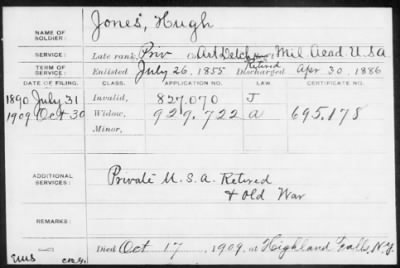 NAME OF SOLDIER: Jones, Hugh
SERVICE: Late rank, Priv Co. Art Detch, Mil Acad U.S.A
TERM OF SERVICE: Enlisted July 26, 1855 Retired Discharged Apr 30, 1886
DATE OF FILING. CLASS. APPLICATION NO. LAW. CERTIFICATE NO.
1890 July 31 Invalid, 827,070 J
1909 Oct 30 Widow, 929,722 a 695,178
Minor,
ADDITIONAL SERVICES: Private U.S.A. Retired
& Old War
REMARKS:
Died Oct 17, 1909, at Highland Falls, N.Y.